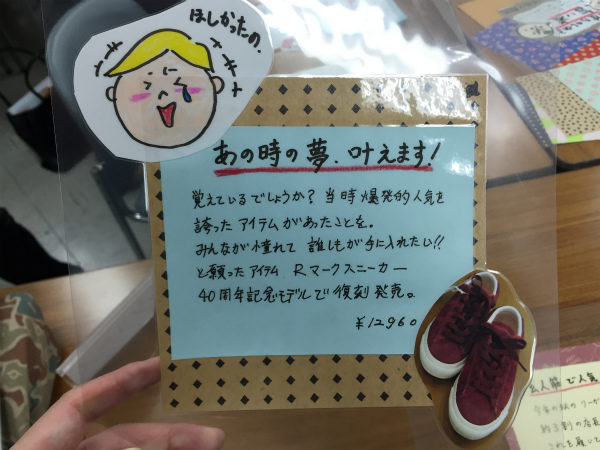 ほしかったの。
あの時の夢、叶えます!
覚えているでしょうか? 当時爆発的人気を
誇ったアイテムがあったことを。
みんなが憧れて 誰しもが手に入れたい!!
と願ったアイテム Rマークスニーカー
40周年記念モデルで復刻発売。
¥12960
人気